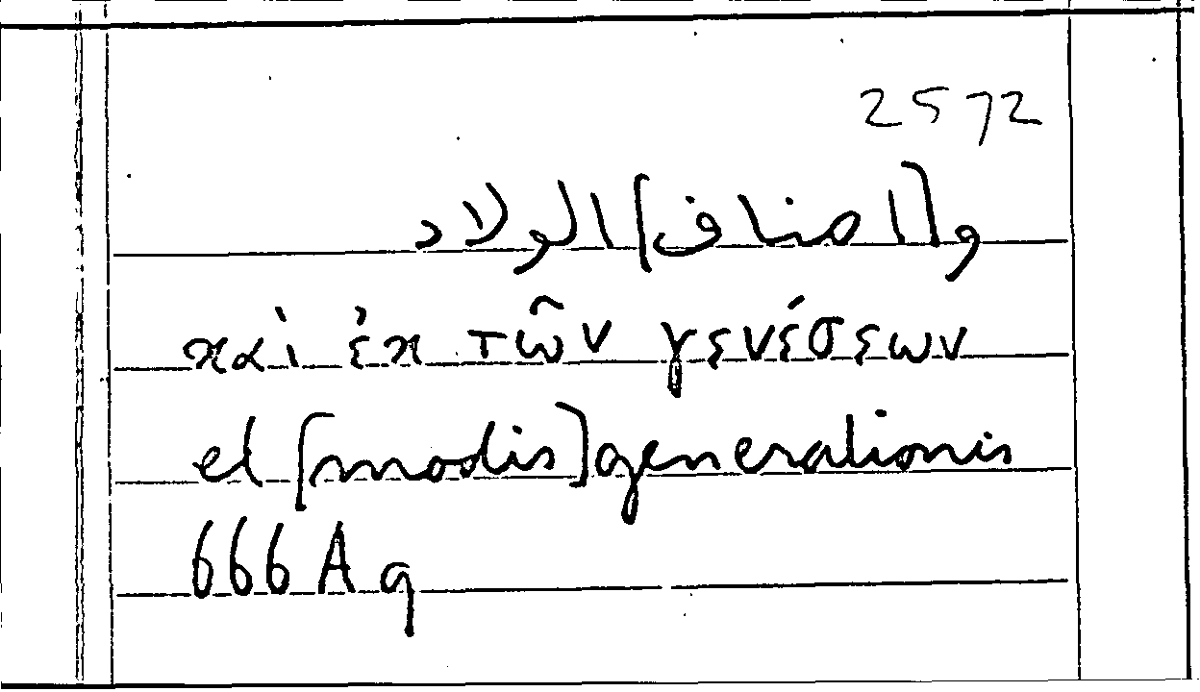 2572
و[اصناف] الولاد
καὶ ἐκ τῶν γενέσεων
et [modis] generationis
666 A q